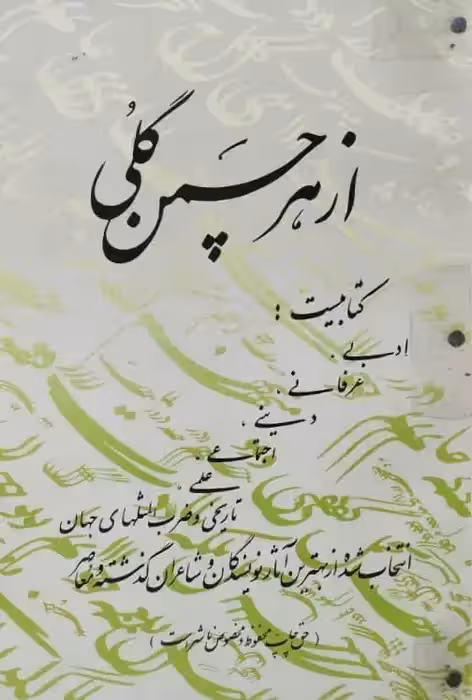 از هر چمن گلی
کتابیست :
ادبی .
عرفانی .
دینی .
اجتماعی .
علمی .
تاریخی و ضرب المثلهای جهان
انتخاب شده از بهترین آثار نویسندگان و شاعران گذشته و معاصر
( حق چاپ محفوظ و مخصوص ناشر است )